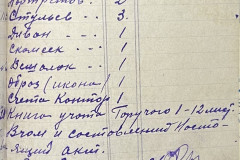 Портретов 2
Стульев 3.
Диван 1
Скамеек 1
Вешалок 1
Образ (икона) 1
Счета Контор 1
Книга учета Горучего 1-12 лист.
В чом и составлений Насто-
ящий акт.